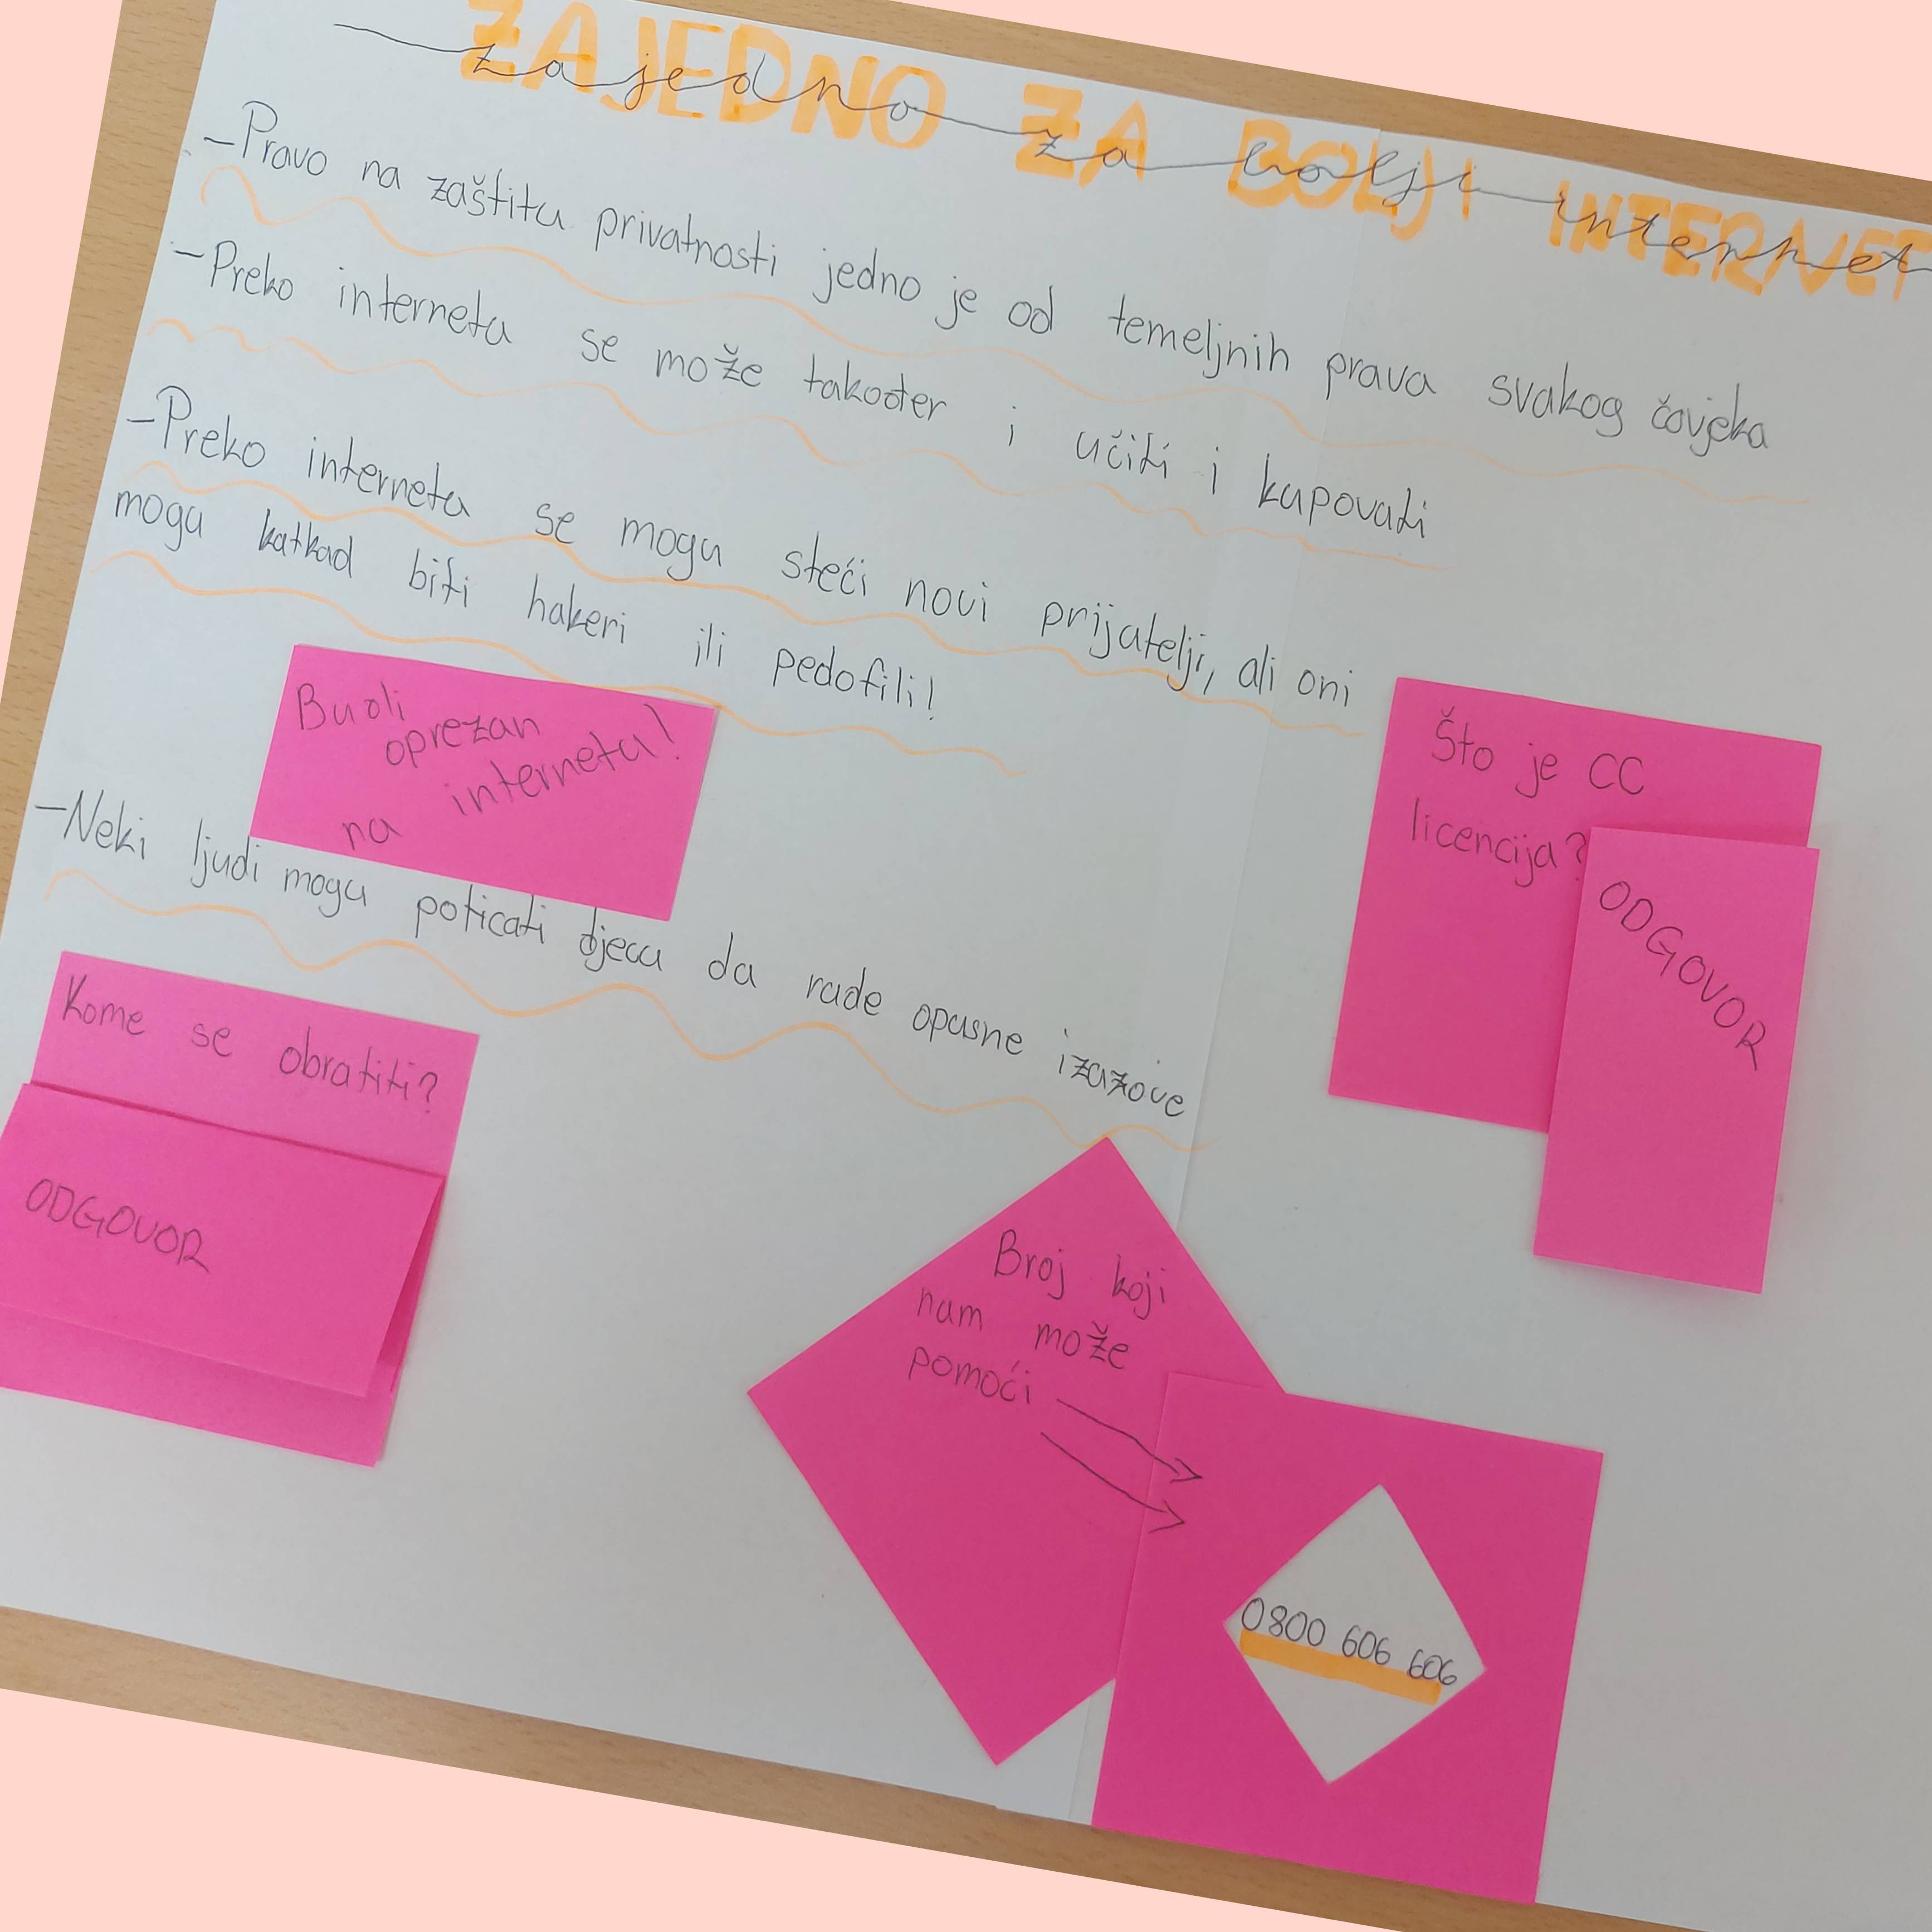 ZAJEDNO ZA BOLJI INTERNET
zajedno za bolji internet
-Pravo na zaštitu privatnosti jedno je od temeljnih prava svakog čovjeka
-Preko interneta se može također i učiti i kupovati
-Preko interneta se mogu steći novi prijatelji, ali oni
mogu katkad biti hakeri ili pedofili!
Budi
oprezan
na interneta!
-Neki ljudi mogu poticati djecu da rade opasne izazove
Što je CC
licencija?
ODGOVOR
Kome se obratiti?
ODGOVOR
Broj koji
nam može
pomoći
0800 606 606